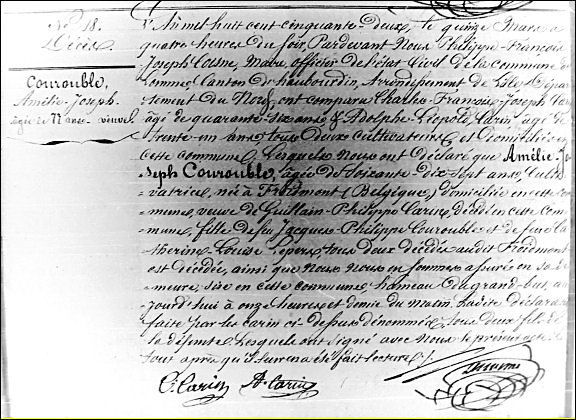 No. 18.
Décès
Courouble,
Amélie-Joseph
âgée de 77 ans veuve
L'An mil huit cent cinquante-deux, le quinze Mars à
quatre heures du soir, Pardevant Nous Philippe-François
Joseph Maire Officier de l'état Civil de la commune
Canton d'haubourdin, Arrondissement de Lille, Dépar-
tement du Nord, ont comparu Charles-François-Joseph Carin
âgé de quarante-six ans & Adolphe-Léopold Carin, âgé de
trente-un ans, tous deux cultivateurs et domiciliés en
cette commune, Lesquels nous ont déclaré que Amélie-Jo-
seph Courouble, âgée de soixante-dix-sept ans, Culti-
vatrice, née à Froidmont (Belgique) domiciliée en cette com-
mune, veuve de Guillain-Philippe Carin, décédé en cette com-
mune, fille de feu Jacques-Philippe Courouble et de feue Ca-
therine-Louise Lepers, tous deux décédés audit Froidmont
est décédée, ainsi que Nous Nous en sommes assuré en sa de-
meure, sise en cette commune, hameau du grand-but, au-
jourd'hui à onze heures et demie du matin, ladite déclaration
faite par les Carin ci-dessus dénommés, tous deux fils de
la défunte, Lesquels ont signé avec Nous le présent acte
tout après qu'il leur en a été fait lecture./.
C. Carin A. Carin